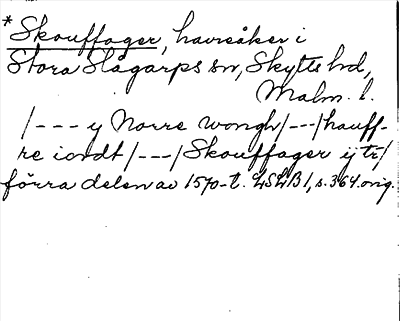 * Skouffager, havreåker i
Stora Slågarps sn, Skytts hd,
Malm. l.
/--- y Norre wongh/---/hauff-
re iordt/---/Skouffager ÿ tr/
förra delen av 1570-t. LSLB 1, s. 364. orig.